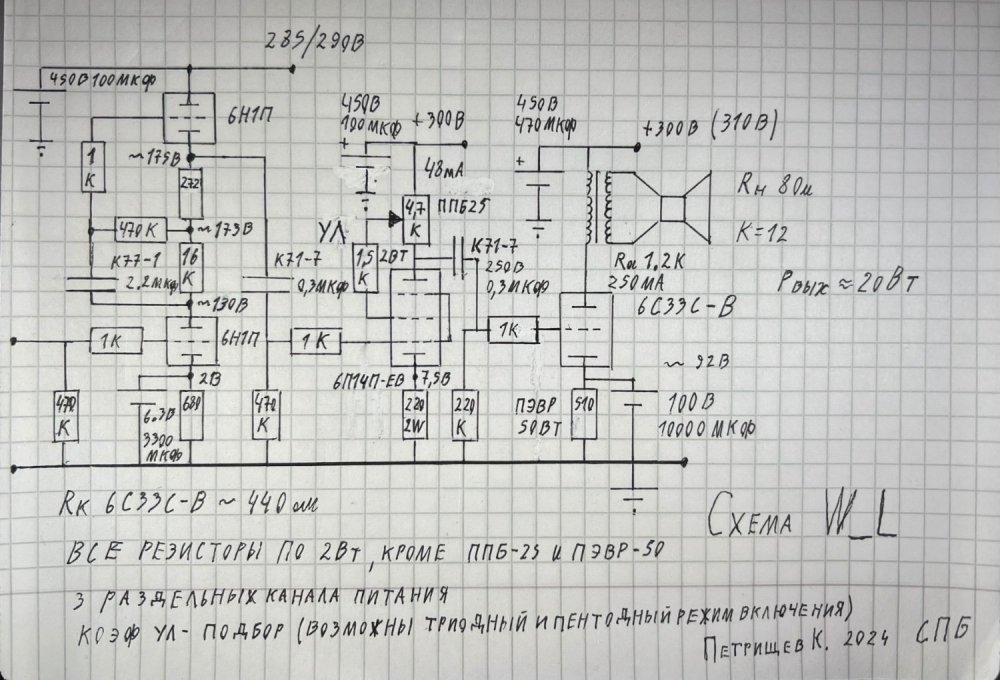 285/290В
450В 100МКФ
6Н1П
450В
100МКФ
+300В
450В
470МКФ
+300В (310В)
~175В
1
К
272
48мА
ППБ25
4,7
К
Rн 8Ом
К=12
470К
~173В
УЛ
1,5
К
2ВТ
К71-7
250В
0,3МКФ
К77-1
2.2МКФ
16
К
К71-7
0,3МКФ
Ra 1.2К
250МА
Рвых ≈20Вт
~130В
6С33С-В
1К
6Н1П
1К
1К
~92В
2В
6П14П-ЕВ
7,5В
470
К
6.3В
3300
МКФ
680
470
К
220
2W
220
К
ПЭВР
50ВТ
510
100В
10000МКФ
Rк 6С33С-В ~ 440ом
Схема W_L
ВСЕ РЕЗИСТОРЫ ПО 2Вт, КРОМЕ ППБ-25 и ПЭВР-50
3 РАЗДЕЛЬНЫХ КАНАЛА ПИТАНИЯ
КОЭФ УЛ- ПОДБОР (ВОЗМОЖНЫ ТРИОДНЫЙ И ПЕНТОДНЫЙ РЕЖИМ ВКЛЮЧЕНИЯ)
ПЕТРИЩЕВ К. 2024 СПБ